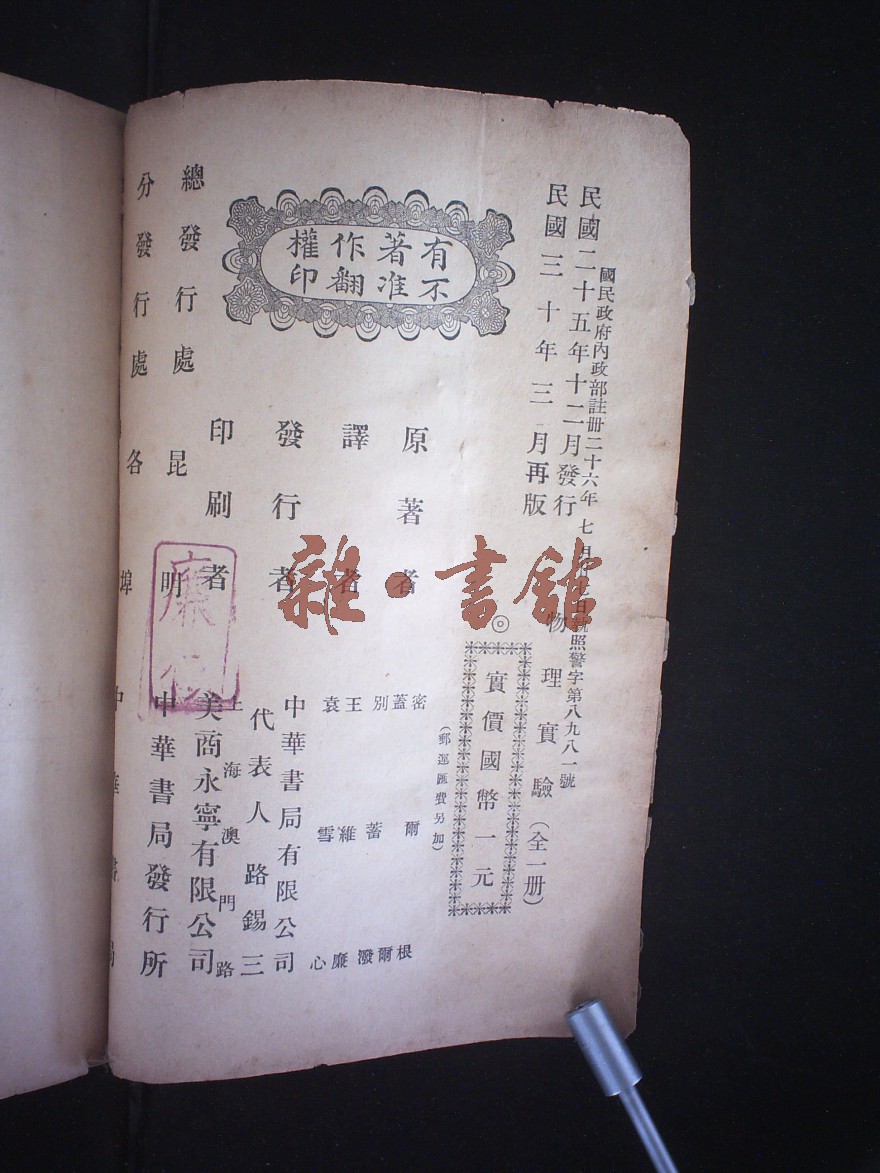 國民政府內政部註冊二十六年 七月 日執照警字第八九八一號
民國二十五年十二月發行
民國三十年三月再版
物理實驗(全一册)
◎
實價國幣一元
(郵運匯費另加)
有著作權
不准翻印
原著者
密爾根
蓋爾
別蓄潑
譯者
王維廉
袁雪心
發行者
中華書局有限公司
代表人路錫三
印刷者
上海澳門路
美商永寧有限公司
總發行處
昆明
中華書局發行所
分發行處
各埠
中華書局
雜·書館